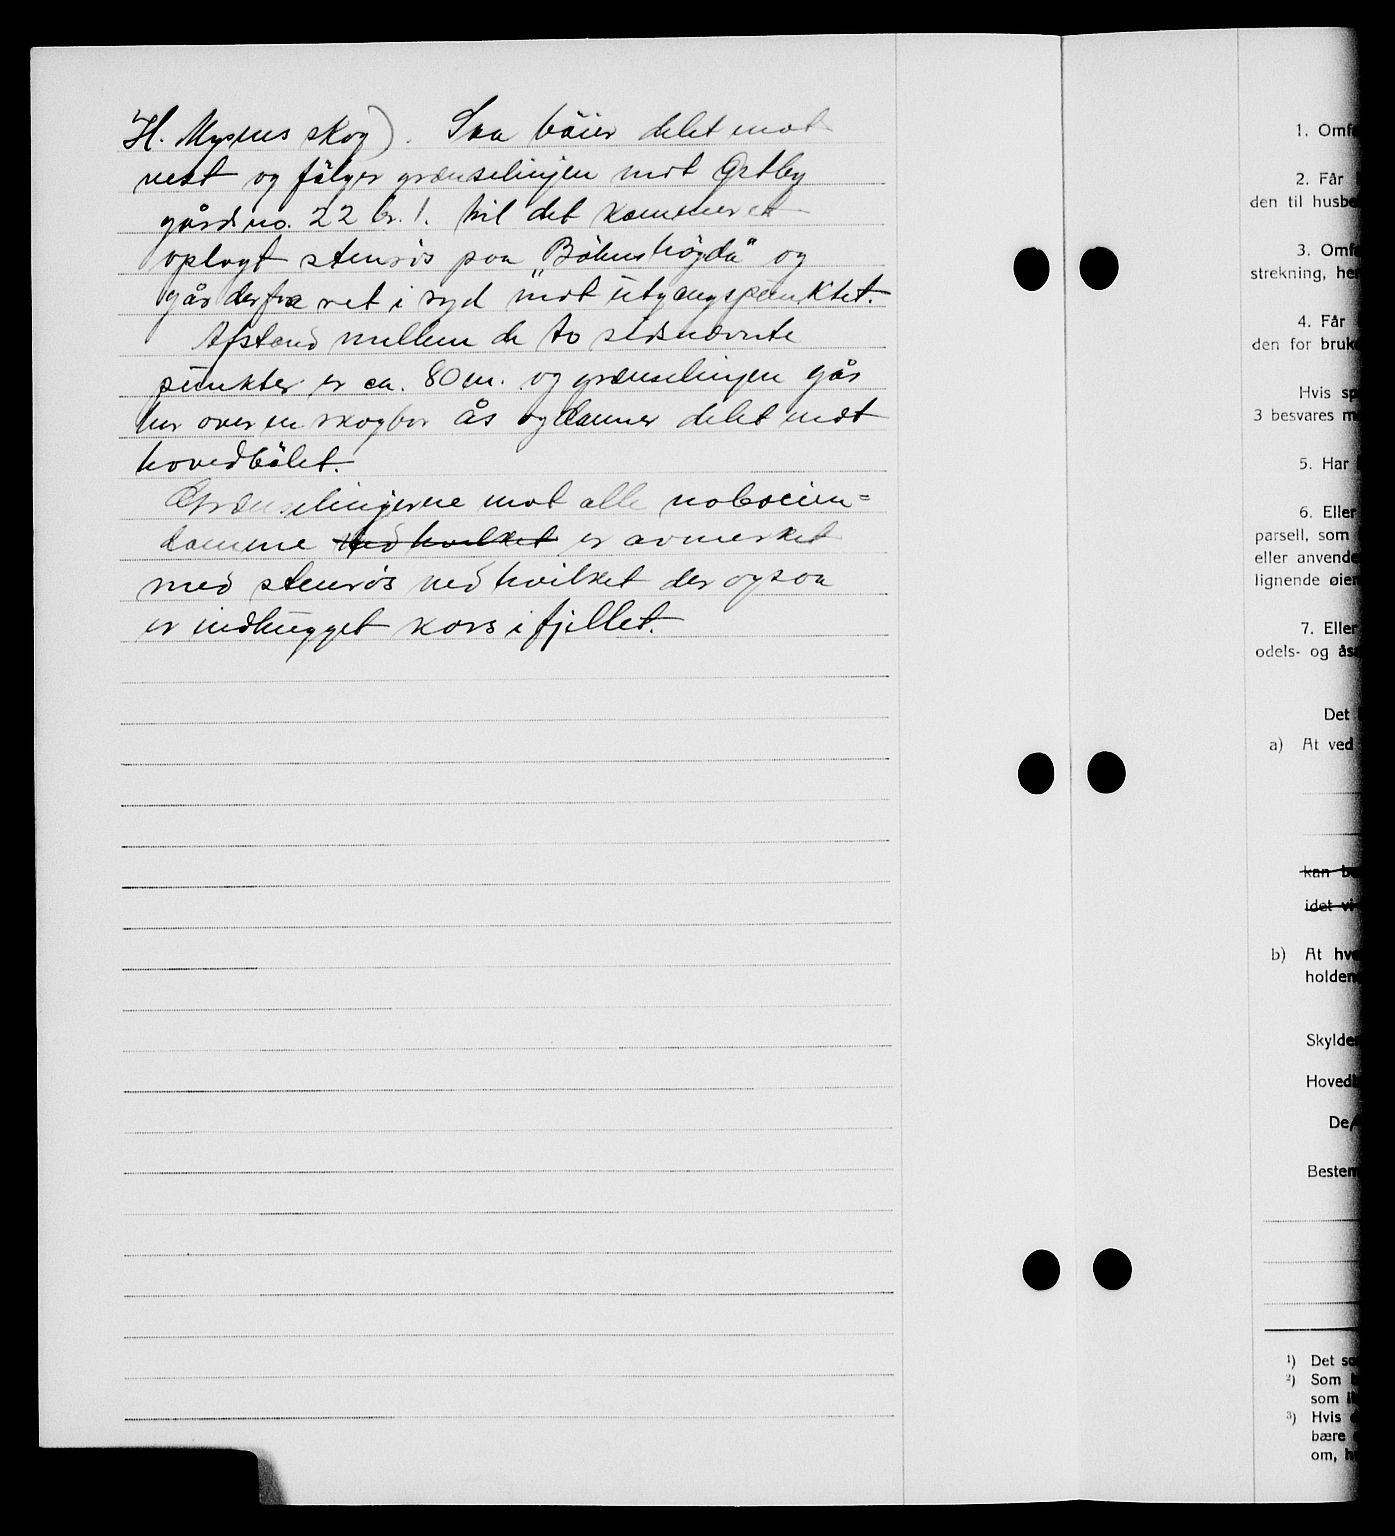 H. Mysens skog). Saa böier delet mot
vest og fölger grænselinjen mot Ørtby
gårdno. 22 br. 1. til det kommer en
oplagt stenrös paa "Böhnshögda" og
går derfra ret i syd mot utgangspunktet.
Afstand mellem de to sidsnævnte
punkter er ca. 80 m. og grænselinjen går
her over en skogbar ås og danner delet mot
hovedbölet.
Grænselinjerne mot alle naboeien=
damene ved hvilket er avmerket
med stenrös ved hvilket der ogsaa
er indhugget kors i fjellet.
1. Omf
2. Får
den til husbe
3. Omf
strekning, her
4. Får
den for bruk
Hvis sp
3 besvares m
5. Har
6. Eller
parsell, som
eller anvende
lignende øien
7. Eller
odels- og åse
Det
a) At ved
kan be
idet vi
b) At hve
holden
Skylde
Hovedb
De
Bestem
1) Det so
2) Som
som i
3) Hvis
bære
om, h